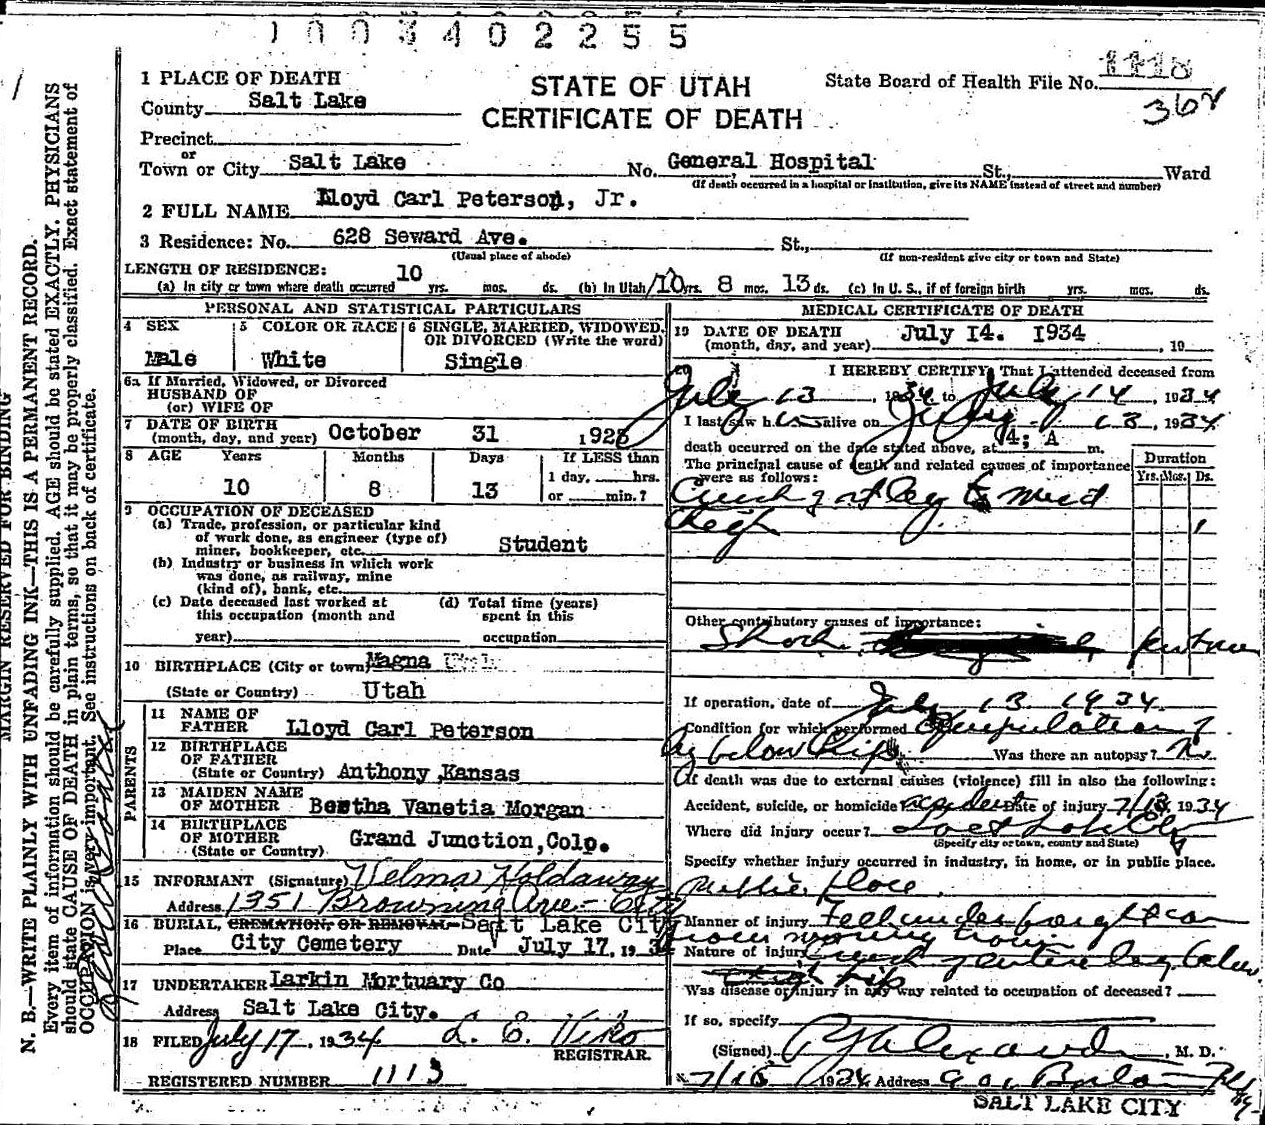 1003402255
1 PLACE OF DEATH
STATE OF UTAH
CERTIFICATE OF DEATH
State Board of Health File No. 1118
368
County Salt Lake
Precinct
or
Town or City Salt Lake No. General Hospital St., Ward
(If death occurred in a hospital or institution, give its NAME instead of street and number)
2 FULL NAME Lloyd Carl Peterson, Jr.
3 Residence: No. 628 Seward Ave. St.,
(Usual place of abode) (If non-resident give city or town and State)
LENGTH OF RESIDENCE:
(a) In city or town where death occurred 10 yrs. mos. ds. (b) In Utah 10 yrs. 8 mos. 13 ds. (c) In U. S., if of foreign birth yrs. mos. ds.
PERSONAL AND STATISTICAL PARTICULARS
4 SEX 5 COLOR OR RACE 6 SINGLE, MARRIED, WIDOWED, OR DIVORCED (Write the word)
Male White Single
6a If Married, Widowed, or Divorced
HUSBAND OF
(or) WIFE OF
7 DATE OF BIRTH
(month, day, and year) October 31 1923
8 AGE Years Months Days If LESS than
1 day, hrs.
or min.?
10 8 13
9 OCCUPATION OF DECEASED
(a) Trade, profession, or particular kind
of work done, as engineer (type of)
miner, bookkeeper, etc. Student
(b) Industry or business in which work
was done, as railway, mine
(kind of), bank, etc.
(c) Date deceased last worked at
this occupation (month and
year)
(d) Total time (years)
spent in this
occupation
10 BIRTHPLACE (City or town) Magna Utah
(State or Country) Utah
PARENTS
11 NAME OF
FATHER Lloyd Carl Peterson
12 BIRTHPLACE
OF FATHER
(State or Country) Anthony, Kansas
13 MAIDEN NAME
OF MOTHER Bertha Vanetia Morgan
14 BIRTHPLACE
OF MOTHER
(State or Country) Grand Junction, Colo.
15 INFORMANT (Signature) Velma Holdaway
Address 1351 Browning Ave - City
16 BURIAL, CREMATION, OR REMOVAL Salt Lake City
Place City Cemetery Date July 17, 1934
17 UNDERTAKER Larkin Mortuary Co
Address Salt Lake City.
18 FILED July 17, 1934 L. E. Viko
REGISTRAR.
REGISTERED NUMBER 1113
MEDICAL CERTIFICATE OF DEATH
19 DATE OF DEATH
(month, day, and year) July 14. 1934, 19
I HEREBY CERTIFY, That I attended deceased from
July 13, 1934 to July 14 1934
I last saw h im alive on July 13, 1934
death occurred on the date stated above, at 4; A m.
The principal cause of death and related causes of importance
were as follows:
Duration
Yrs. Mos. Ds.
Crush of rt leg to mid
thigh
Other contributory causes of importance:
Shock
If operation, date of July 13 1934.
Condition for which performed Amputation of
leg below hip Was there an autopsy? No.
If death was due to external causes (violence) fill in also the following:
Accident, suicide, or homicide accident Date of injury 7/13 1934
Where did injury occur? Salt Lake City
(Specify city or town, county and State)
Specify whether injury occurred in industry, in home, or in public place.
Public place.
Manner of injury Fell under freight car
from moving train
Nature of injury Crush of entire leg below
hip
Was disease or injury in any way related to occupation of deceased?
If so, specify
(Signed) Alexander, M. D.
7/15 1934 Address Boston Bldg
SALT LAKE CITY
MARGIN RESERVED FOR BINDING
N. B.—WRITE PLAINLY WITH UNFADING INK—THIS IS A PERMANENT RECORD.
Every item of information should be carefully supplied. AGE should be stated EXACTLY. PHYSICIANS
should state CAUSE OF DEATH in plain terms, so that it may be properly classified. Exact statement of
OCCUPATION is very important. See instructions on back of certificate.